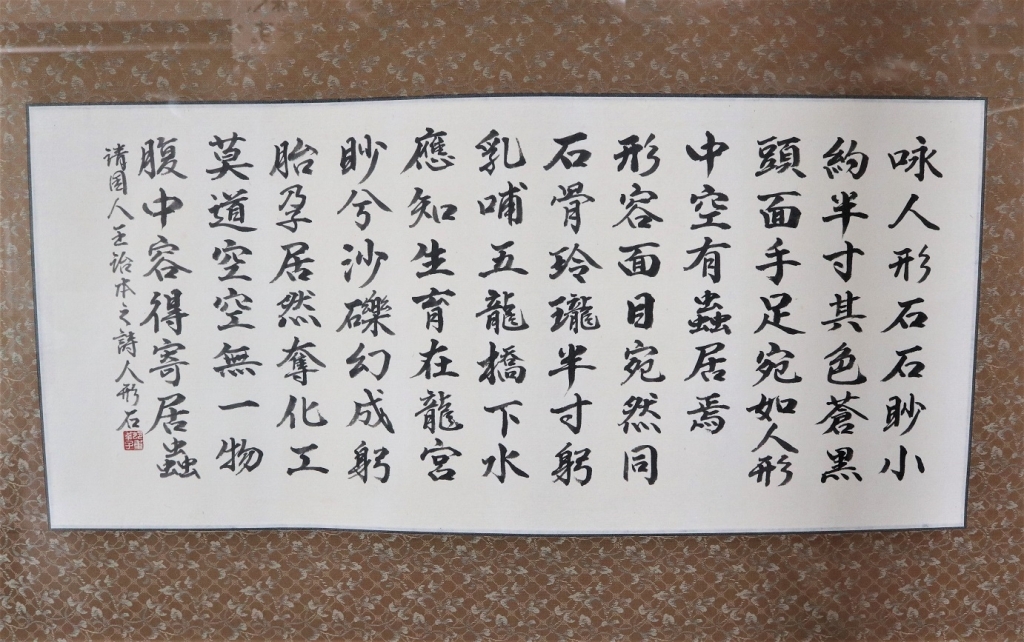 咏人形石石眇小
約半寸其色蒼黒
頭面手足宛如人形
中空有蟲居焉
形容面目宛然同
石骨玲瓏半寸躬
乳哺五龍橋下水
應知生育在龍宮
眇兮沙礫幻成躬
胎孕居然奪化工
莫道空空無一物
腹中容得寄居蟲
清国人王治本之詩人形石